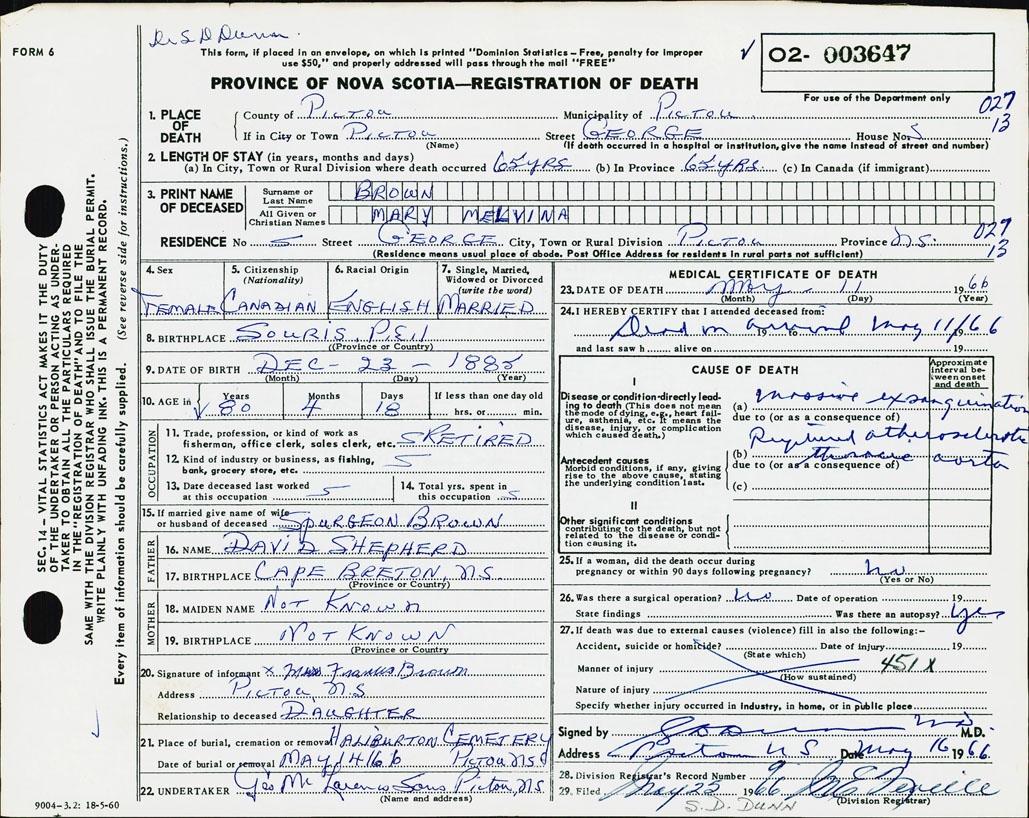 Dr S D Dunn.
FORM 6
This form, if placed in an envelope, on which is printed "Dominion Statistics – Free, penalty for improper
use $50," and properly addressed will pass through the mail "FREE"
PROVINCE OF NOVA SCOTIA—REGISTRATION OF DEATH
✓ 02- 003647
For use of the Department only
027
13
1. PLACE OF DEATH
County of Pictou Municipality of Pictou
If in City or Town Pictou Street GEORGE House No 5
(Name) (If death occurred in a hospital or institution, give the name instead of street and number)
2. LENGTH OF STAY (in years, months and days)
(a) In City, Town or Rural Division where death occurred 65 YRS (b) In Province 65 YRS. (c) In Canada (if immigrant)
3. PRINT NAME OF DECEASED
Surname or Last Name BROWN
All Given or Christian Names MARY MELVINA
RESIDENCE No 5 Street GEORGE City, Town or Rural Division Pictou Province N.S. 027
13
(Residence means usual place of abode. Post Office Address for residents in rural parts not sufficient)
4. Sex FEMALE
5. Citizenship (Nationality) CANADIAN
6. Racial Origin ENGLISH
7. Single, Married, Widowed or Divorced (write the word) MARRIED
8. BIRTHPLACE SOURIS, P.E.I
(Province or Country)
9. DATE OF BIRTH DEC - 23 - 1885
(Month) (Day) (Year)
10. AGE in Years 80 Months 4 Days 18 If less than one day old
hrs. or min.
OCCUPATION
11. Trade, profession, or kind of work as
fisherman, office clerk, sales clerk, etc. RETIRED
12. Kind of industry or business, as fishing,
bank, grocery store, etc.
13. Date deceased last worked
at this occupation
14. Total yrs. spent in
this occupation
15. If married give name of wife
or husband of deceased SPURGEON BROWN
FATHER
16. NAME DAVID SHEPHERD
17. BIRTHPLACE CAPE BRETON, N.S
(Province or Country)
MOTHER
18. MAIDEN NAME NOT KNOWN
19. BIRTHPLACE NOT KNOWN
(Province or Country
20. Signature of informant x Brown
Address PICTOU, N.S
Relationship to deceased DAUGHTER
21. Place of burial, cremation or removal HALIBURTON CEMETERY
Date of burial or removal MAY 14 66 PICTOU N.S
22. UNDERTAKER Sons Pictou, NS
(Name and address)
9004-3.2: 18-5-60
MEDICAL CERTIFICATE OF DEATH
23. DATE OF DEATH May 11 1966
(Month) (Day) (Year)
24. I HEREBY CERTIFY that I attended deceased from:
Dead on arrival May 11/66 19 19
and last saw h alive on 19
CAUSE OF DEATH
Approximate interval between onset and death
I
Disease or condition directly leading to death (This does not mean
the mode of dying, e.g., heart failure, asthenia, etc. It means the
disease, injury, or complication which caused death.)
(a) Massive exsanguination
due to (or as a consequence of)
Ruptured atherosclerotic
(b) thoracic aorta
due to (or as a consequence of)
(c)
Antecedent causes
Morbid conditions, if any, giving
rise to the above cause, stating
the underlying condition last.
II
Other significant conditions
contributing to the death, but not
related to the disease or condition causing it.
25. If a woman, did the death occur during
pregnancy or within 90 days following pregnancy? No
(Yes or No)
26. Was there a surgical operation? No Date of operation 19
State findings Was there an autopsy? Yes
27. If death was due to external causes (violence) fill in also the following:–
Accident, suicide or homicide? Date of injury 19
(State which)
Manner of injury 451X
(How sustained)
Nature of injury
Specify whether injury occurred in industry, in home, or in public place
Signed by S D Dunn MD M.D.
Address Pictou N S Date May 16 1966
28. Division Registrar's Record Number 9
29. Filed May 25 1966
(Division Registrar)
S.D. DUNN
SEC. 14 – VITAL STATISTICS ACT MAKES IT THE DUTY
OF THE UNDERTAKER OR PERSON ACTING AS UNDERTAKER TO OBTAIN ALL THE PARTICULARS REQUIRED
IN THE "REGISTRATION OF DEATH" AND TO FILE THE
SAME WITH THE DIVISION REGISTRAR WHO SHALL ISSUE THE BURIAL PERMIT.
WRITE PLAINLY WITH UNFADING INK. THIS IS A PERMANENT RECORD.
Every item of information should be carefully supplied. (See reverse side for instructions.)